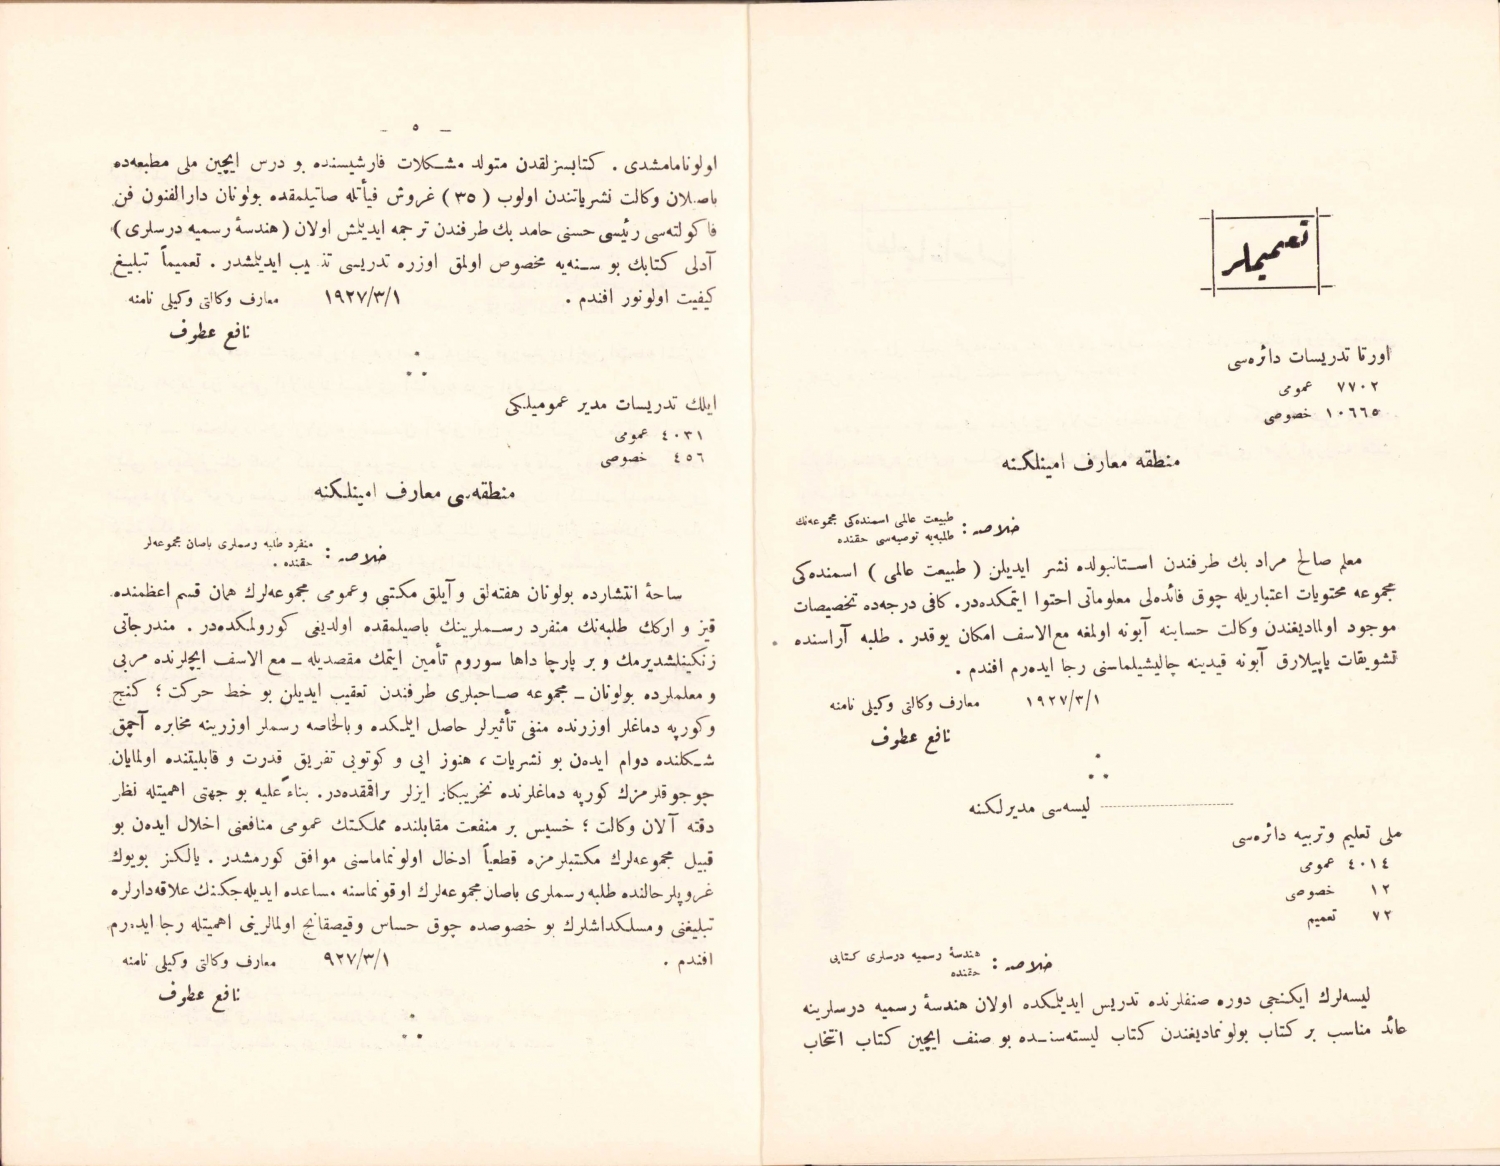 تعميملر
اورتا تدريسات دائره‌سى
٧٧٠٢ عمومى
١٠٦٦٥ خصوصى
منطقه معارف امينلكنه
خلاصه : طبيعت عالمى اسمنده‌كى مجموعه‌نك
طلبه‌يه توصيه‌سى حقنده
معلم صالح مراد بك طرفندن استانبولده نشر ايديلن ( طبيعت عالمى ) اسمنده‌كى
مجموعه محتويات اعتباريله چوق فائده‌لى معلوماتى احتوا ايتمكده‌در. كافى درجه‌ده تخصيصات
موجود اولماديغندن وكالت حسابنه آبونه اولمغه مع‌الاسف امكان يوقدر . طلبه آراسنده
تشويقات ياپيلارق آبونه قيدينه چاليشيلماسنى رجا ايده‌رم افندم .
١٩٢٧/٣/١ معارف وكالتى وكيلى نامنه
نافع عطوف
ليسه‌سى مديرلكنه
ملى تعليم وتربيه دائره‌سى
٤٠١٤ عمومى
١٢ خصوصى
٧٢ تعميم
خلاصه : هندسۀ رسميه درسلرى كتابى
حقنده
ليسه‌لرك ايكنجى دوره صنفلرنده تدريس ايديلمكده اولان هندسۀ رسميه درسلرينه
عائد مناسب بر كتاب بولونماديغندن كتاب ليسته‌سنده بو صنف ايچين كتاب انتخاب
— ٥ —
اولونامامشدى . كتابسزلقدن متولد مشكلات قارشيسنده بو درس ايچين ملى مطبعه‌ده
باصيلان وكالت نشرياتندن اولوب ( ٣٥ ) غروش فيأتله صاتيلمقده بولونان دارالفنون فن
فاكولته‌سى رئيسى حسنى حامد بك طرفندن ترجمه ايديلمش اولان ( هندسۀ رسميه درسلرى )
آدلى كتابك بو سنه‌يه مخصوص اولمق اوزره تدريسى تنسيب ايديلمشدر . تعميماً تبليغ
كيفيت اولونور افندم . ١٩٢٧/٣/١ معارف وكالتى وكيلى نامنه
نافع عطوف
ايلك تدريسات مدير عموميلكى
٤٠٣١ عمومى
٤٥٦ خصوصى
منطقه‌سى معارف امينلكنه
خلاصه : منفرد طلبه رسملرى باصان مجموعه‌لر
حقنده .
ساحۀ انتشارده بولونان هفته‌لق و آيلق مكتبى وعمومى مجموعه‌لرك همان قسم اعظمنده
قيز و اركك طلبه‌نك منفرد رسملرينك باصيلمقده اولديغى كورولمكده‌در . مندرجاتى
زنكينلشديرمك و بر پارچا داها سوروم تأمين ايتمك مقصديله ــ مع الاسف ايچلرنده مربى
و معلملرده بولونان ــ مجموعه صاحبلرى طرفندن تعقيب ايديلن بو خط حركت ؛ كنج
وكورپه دماغلر اوزرنده منفى تأثيرلر حاصل ايلمكده وبالخاصه رسملر اوزرينه مخابره آچمق
شكلنده دوام ايده‌ن بو نشريات ، هنوز ايى و كوتويى تفريق قدرت و قابليتنده اولمايان
چوجوقلرمزك كورپه دماغلرنده تخريبكار ايزلر براقمقده‌در. بناءً عليه بو جهتى اهميتله نظر
دقته آلان وكالت ؛ خسيس بر منفعت مقابلنده مملكتك عمومى منافعنى اخلال ايده‌ن بو
قبيل مجموعه‌لرك مكتبلرمزه قطعياً ادخال اولونماماسنى موافق كورمشدر . يالكز بويوك
غروپلر حالنده طلبه رسملرى باصان مجموعه‌لرك اوقونماسنه مساعده ايديله‌جكنك علاقه‌دارلره
تبليغنى ومسلكداشلرك بو خصوصده چوق حساس وقيصقانج اولمالرينى اهميتله رجا ايده‌رم
افندم . ٩٢٧/٣/١ معارف وكالتى وكيلى نامنه
نافع عطوف